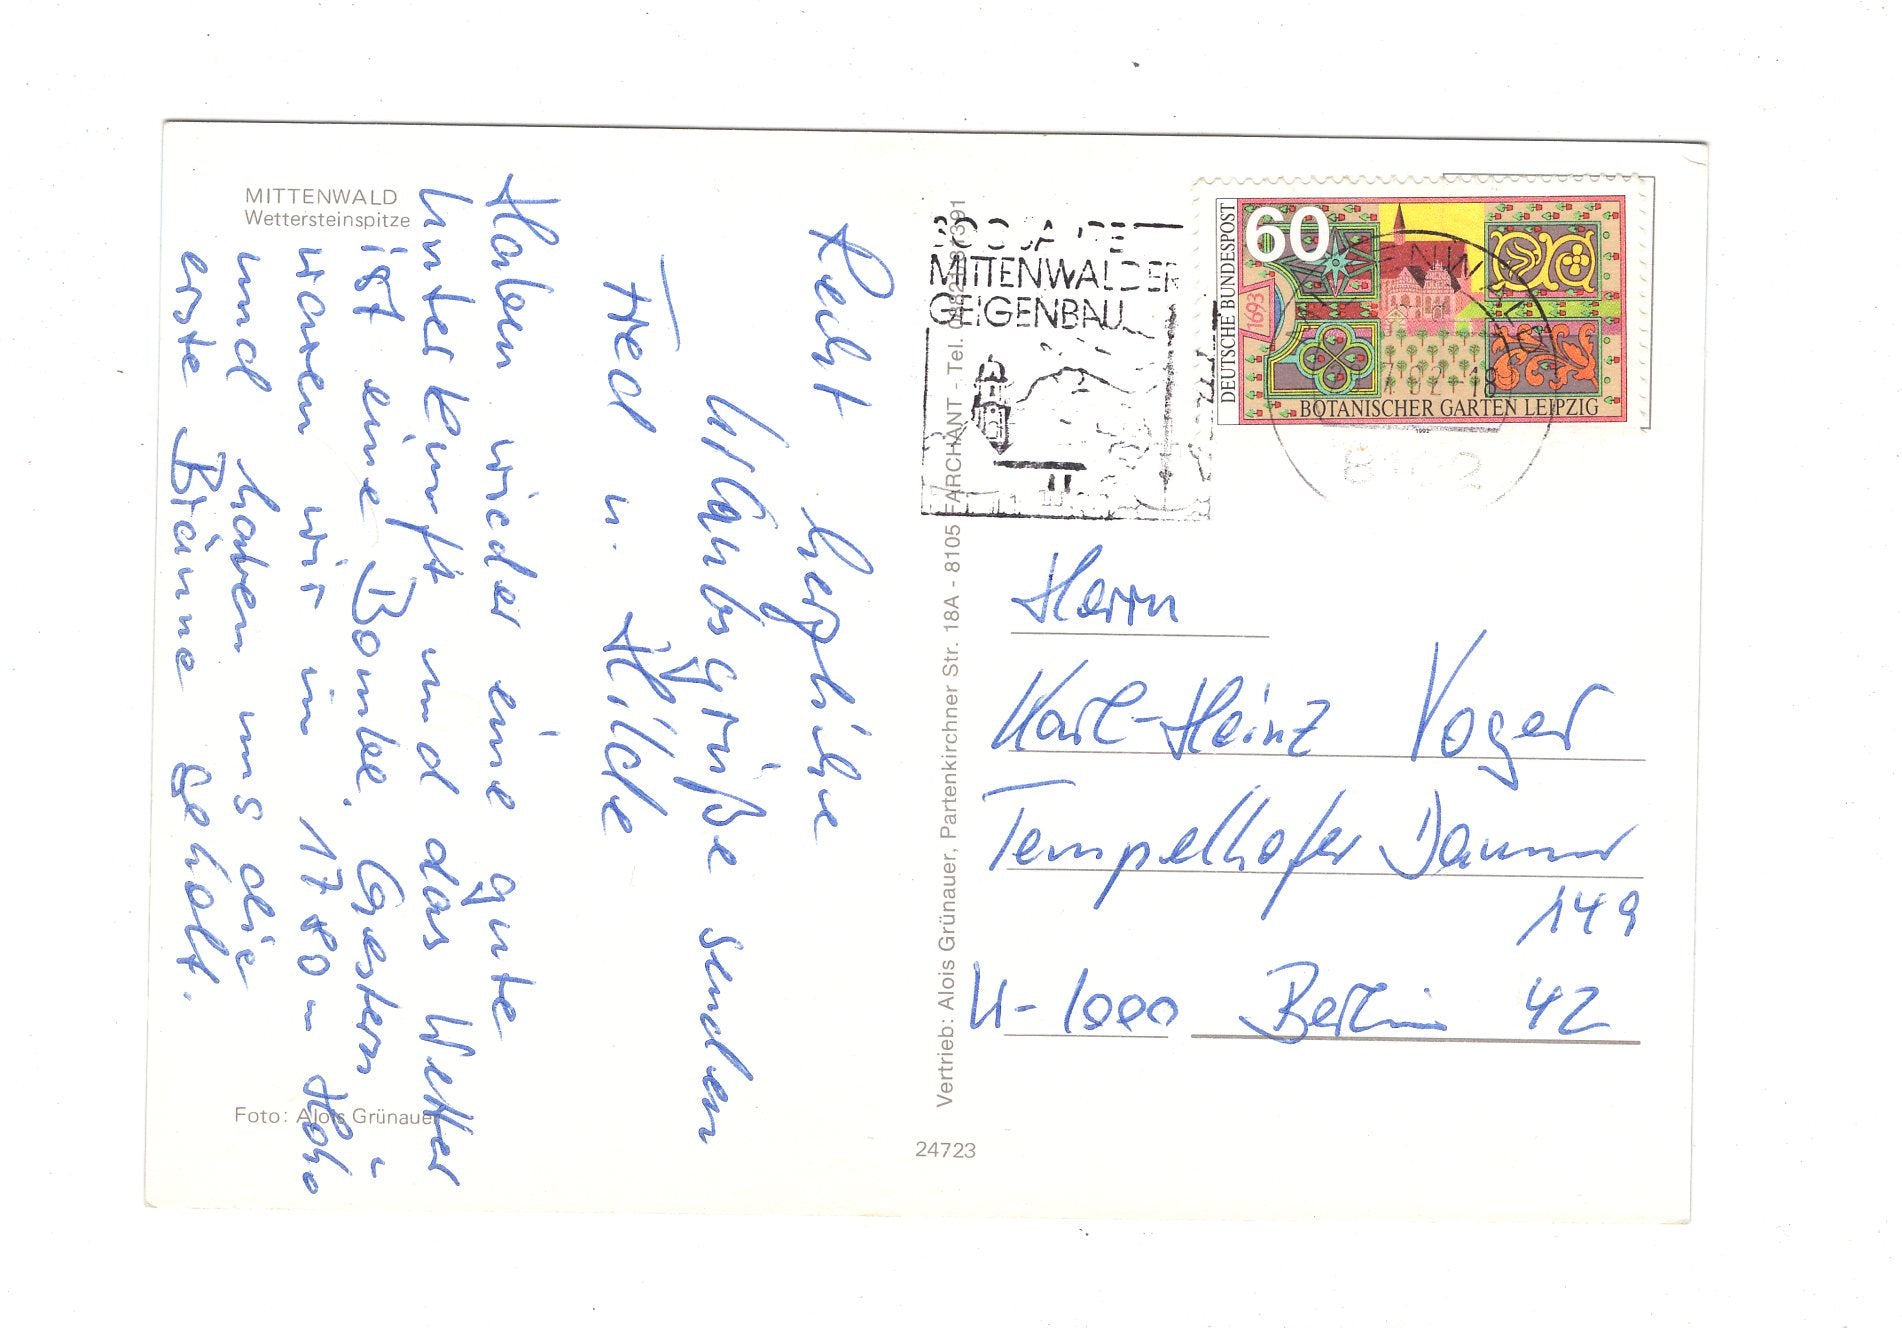 MITTENWALD
Wettersteinspitze
Recht herzliche
Urlaubsgrüße senden
Fred u. Hilde
Haben wieder eine gute
Unterkunft und das Wetter
ist eine Bombe. Gestern
waren wir in 1780 m Höhe
und haben uns die
erste Bräune geholt.
Foto: Alois Grünauer
Vertrieb: Alois Grünauer, Partenkirchner Str. 18A - 8105 FARCHANT - Tel.
24723
300 JAHRE
MITTENWALDER
GEIGENBAU
60
DEUTSCHE BUNDESPOST
1693
BOTANISCHER GARTEN LEIPZIG
1992
Herrn
Karl-Heinz Voger
Tempelhofer Damm
149
W-1000 Berlin 42